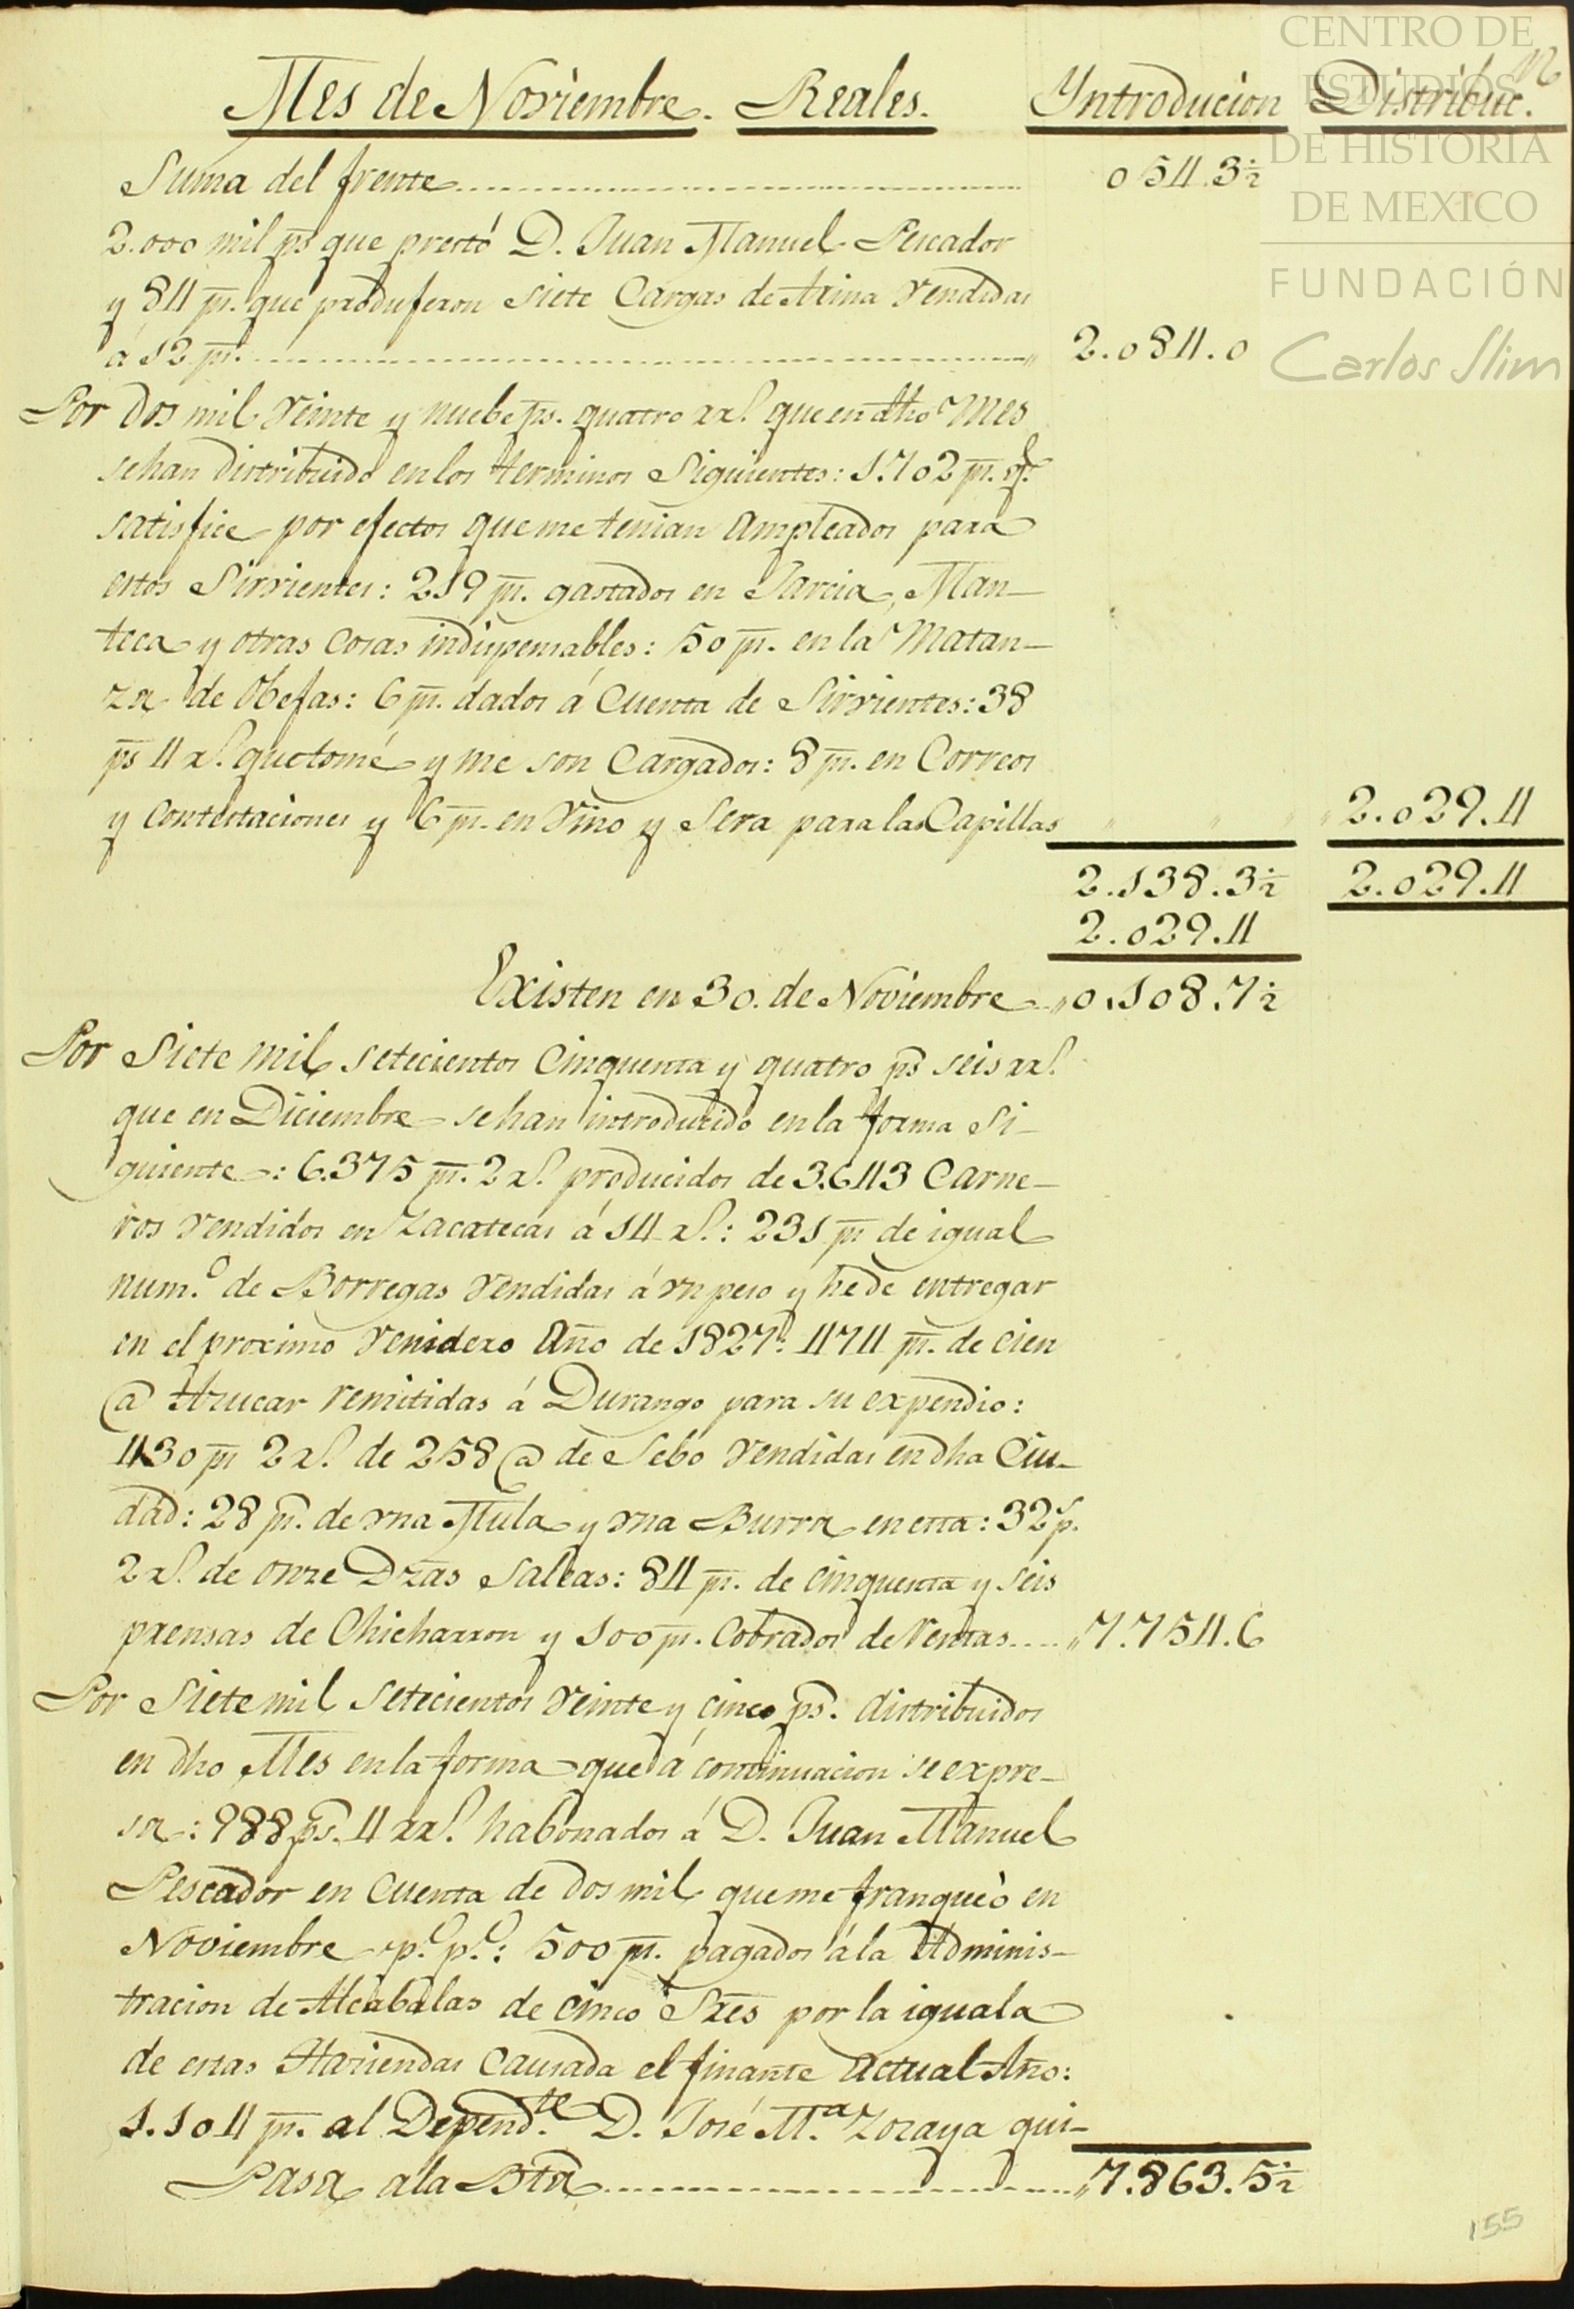 CENTRO DE
ESTUDIOS
DE HISTORIA
DE MEXICO
FUNDACIÓN
Carlos Slim
Mes de Noviembre. Reales. Yntroducion Distribuc.n
Suma del frente 054.3½
2.000 mil ps que prestó D. Juan Manuel Pescador
y 84 ps. que produjeron siete Cargas de Arina vendidas
á 12 ps. 2.084.0
Por dos mil veinte y nuebe ps. quatro rr.s que en dho Mes
se han distribuido en los terminos Siguientes: 1.702 ps. q.e
satisfice por efectos que me tenian Ampleados para
estos Sirvientes: 219 ps. gastados en Jarcia, Man-
teca y otras cosas indispensables: 50 ps. en la Matan-
za de Obejas: 6 ps. dados á Cuenta de Sirvientes: 38
ps 4 r.s que tomé y me son Cargados: 8 ps. en Correos
y Contestaciones y 6 ps. en Vino y Sera para las Capillas 2.029.4
2.138.3½ 2.029.4
2.029.4
Existen en 30. de Noviembre 0.108.7½
Por Siete mil setecientos Cinquenta y quatro ps seis rr.s
que en Diciembre se han introducido en la forma Si-
guiente: 6.375 ps. 2 r.s producidos de 3.643 Carne-
ros vendidos en Zacatecas á 14 r.s: 231 ps de igual
num.o de Borregas vendidas á vn peso y he de entregar
en el proximo venidero Año de 1827: 474 ps. de cien
@ Azucar remitidas á Durango para su expendio:
430 ps 2 r.s de 258 @ de Sebo vendidas en dha Ciu-
dad: 28 ps. de vna Mula y vna Burra en esta: 32 p.s
2 r.s de onze Dzas Saleas: 84 ps. de cinquenta y seis
prensas de Chicharron y 100 ps. Cobrados de Ventas 7.754.6
Por Siete mil setecientos veinte y cinco ps. distribuidos
en dho Mes en la forma que á continuacion se expre-
sa: 988 ps. 4 rr.s habonados á D. Juan Manuel
Pescador en cuenta de dos mil que me franqueò en
Noviembre p.o p.o: 500 ps. pagados á la Adminis-
tracion de Alcabalas de cinco Sres por la iguala
de estas Haciendas causada el finante actual Año:
1.104 ps. al Depend.te D. José M.a Zozaya qui-
Pasa a la Bta 7.863.5½
155